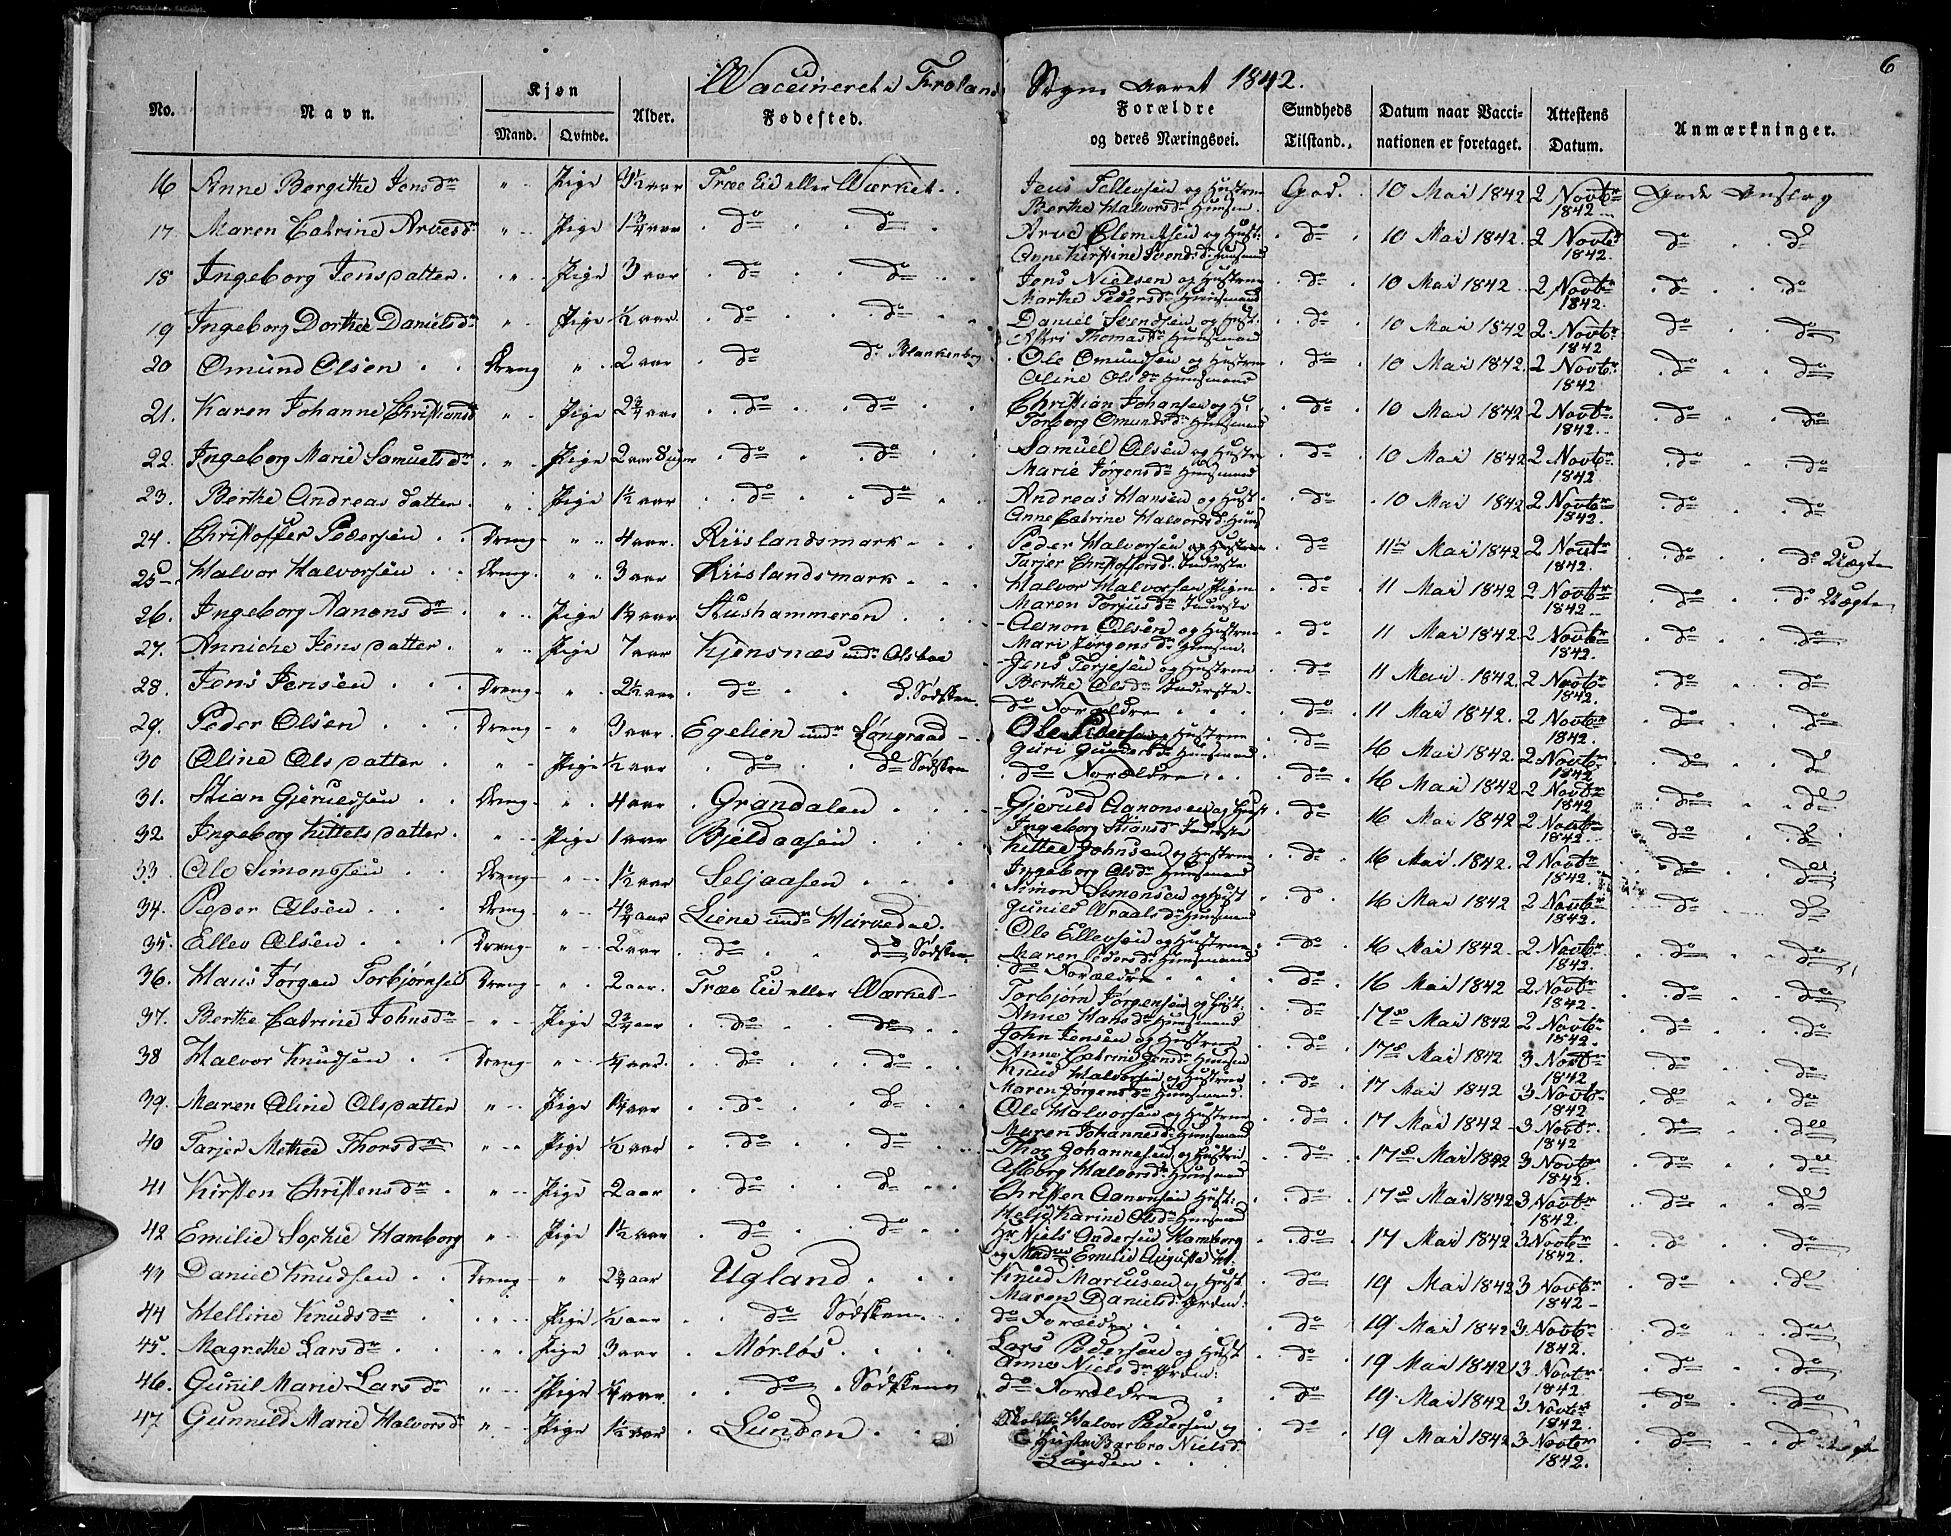 6
Vaccineret i Froland Sogn Aaret 1842.
No. Navn. Kjøn Mand. Qvinde. Alder. Fødested. Forældre og deres Næringsvei. Sundheds Tilstand. Datum naar Vaccinationen er foretaget. Attestens Datum. Anmærkninger.
16 Anne Bergithe Jensdr " Pige 3½ aar Træe Eid eller Værket Jens Tellevsen og Hustrue Berthe Halvorsdr Huusm. God. 10 Mai 1842 2 Novbr 1842 Gode Anslag
17. Maren Catrine Arvesd " Pige 1¾ aar do do Arve Clemetsen og Hust. Anne Kirstine Svendsdr Huusmand do 10 Mai 1842. 2 Novbr 1842. do do
18 Ingeborg Jensdatter " Pige 3 aar do do Jens Nielsen og Hustrue Marthe Pedersdr Huusmand do 10 Mai 1842 2 Novbr 1842. do do
19 Ingeborg Dorthee Danielsdr " Pige ½ aar do do Daniel Svendsen og Hust. Thomasdr Huusmand do 10 Mai 1842 2 Novbr 1842 do do
20 Omund Olsen Dreng " 2 aar do do Blankenborg Ole Omundsen og Hustrue Oline Olsdr Huusmand do 10 Mai 1842. 2 Novbr 1842. do do
21. Karen Johanne Christiansd " Pige 2¾ aar do do Christian Johansen og H. Torborg Omundsdr Huusmand do 10 Mai 1842 2 Novbr 1842. do do
22. Ingeborg Marie Samuelsdr " Pige 2 aar 8 uger do do Samuel Olsen og Hustr. Marie Jørgensdr Huusmand do 10 Mai 1842 2 Novbr 1842 do do
23. Berthe Andreasdatter " Pige 1½ aar do do Andreas Hansen og Hust. Anne Catrine Halvorsdr Huus do 10 Mai 1842 2 Novbr 1842. do do
24. Christoffer Pedersen Dreng " 4 aar. Riislandsmark Peder Halvorsen og Hustrue Tarjer Christoffersd. Inderste do 11 Mai 1842 2 Novbr 1842. do do Uægte
25 Halvor Halvorsen Dreng " 3 aar Riislandsmark Halvor Halvorsen Pigen Maren Torjusdr Inderste do 11 Mai 1842 2 Novbr 1842 do do Uægte
26. Ingeborg Aanonsdr " Pige 1¼ aar Stushammeren Aanon Olsen og Hustrue Mari Jørgensdr Huusm. do 11 Mai 1842. 2 Novbr 1842. do do
27. Anniche Jensdatter " Pige 7 aar Kjensnæs undr Olsboe Jens Terjesen og Hustrue Berthe Olsdr Inderste do 11 Mai 1842. 2 Novbr 1842. do do
28. Jens Jensen Dreng " 2½ aar do do Sødsken do Forældre do 11 Mai 1842. 2 Novbr 1842. do do
29. Peder Olsen Dreng " 3 aar Egelien undr Løngraad Ole Pedersen og Hustrue Guri Gundersdr Huusmand do 16 Mai 1842. 2 Novbr 1842 do do
30 Oline Olsdatter " Pige ½ aar do do Sødsken do Forældre do 16 Mai 1842. 2 Novbr 1842 do do
31. Stian Gjeruldsen Dreng " 4 aar Grandalen Gjeruld Aanonsen og Hust Ingeborg Stiansdr Inderste do 16 Mai 1842 2 Novbr 1842 do do
32. Ingeborg Kittelsdatter " Pige 1 aar Bjeldaasen Kittel Johnsen og Hustrue Ingeborg Olsdr Huusmand do 16 Mai 1842. 2 Novbr 1842. do do
33. Ole Simonssen Dreng " 1½ aar Seljaasen Simon Simonsen og Hust Gunild Wraalsdr Huusmand do 16 Mai 1842 2 Novbr 1842. do do
34. Peder Olsen Dreng " 4¾ aar Liene undr Hirvedal. Ole Ellevsen og Hustrue Maren Pedersdr Huusmand do 16 Mai 1842 2 Novbr 1842. do do
35. Ellev Olsen Dreng " 2 aar do do Sødsken do Forældre do 16 Mai 1842 2 Novbr 1842. do do
36. Hans Jørgen Torbjørnsen Dreng " 2 aar. Træe Eid eller Værket Torbjørn Jørgensen og Hust. Anne Hansdr Huusmand do 17de Mai 1842 2 Novbr 1842. do do
37. Berthe Catrine Johnsdr " Pige 2¾ aar do do John Jensen og Hustrue Anne Catrine Jensdr Huusm do 17de Mai 1842 3 Novbr 1842 do do
38 Halvor Knudsen Dreng " ¼ aar. do do Knud Halvorsen og Hustrue Maren Jørgensdr Huusmand. do 17 Mai 1842 3 Novbr 1842 do do
39. Maren Oline Olsdatter " Pige 1¼ aar do do Ole Halvorsen og Hustrue Maren Johannesdr Huusmand do 17 Mai 1842 3 Novbr. 1842 do do
40 Tarjer Methee Thorsdr " Pige ½ aar do do Thor Johannesen og Hustru Asborg Halvorsdr Huusmand do 17de Mai 1842 3 Novbr 1842. do do
41 Kirsten Christensdr " Pige 2 aar do do Christen Aanonsen Hust. Helje Karine Olsdr Huusmand do 17de Mai 1842 3 Novbr 1842. do do
42 Emilie Sophie Hamborg " Pige 1½ aar do do Hr Niels Andersen Hamborg og Madme Emilie Augusta do 17 Mai 1842 3 Novbr 1842. do do
43 Daniel Knudsen Dreng " 2¾ aar Ugland Knud Mariusen og Hust. Maren Danielsdr do 19 Mai 1842 3 Novbr 1842 do do
44 Helline Knudsdr " Pige ½ aar do Sødsken do Forældre do 19 Mai 1842 3 Novbr 1842. do do
45. Magrethe Larsdr " Pige 3 aar Mørløs Lars Pedersen og Hust Anne Nielsdr do 19 Mai 1842 3 Novbr 1842. do do
46. Gunil Marie Larsdr " Pige ¼ aar do Sødsken do Forældre do 19 Mai 1842 3 Novbr 1842 do do
47 Gunnild Marie Halvorsd " Pige 1½ aar Lunden Halvor Pedersen og Hustru Barbro Nielsd Lunden do 19 Mai 1842 3 Novbr 1842. do do